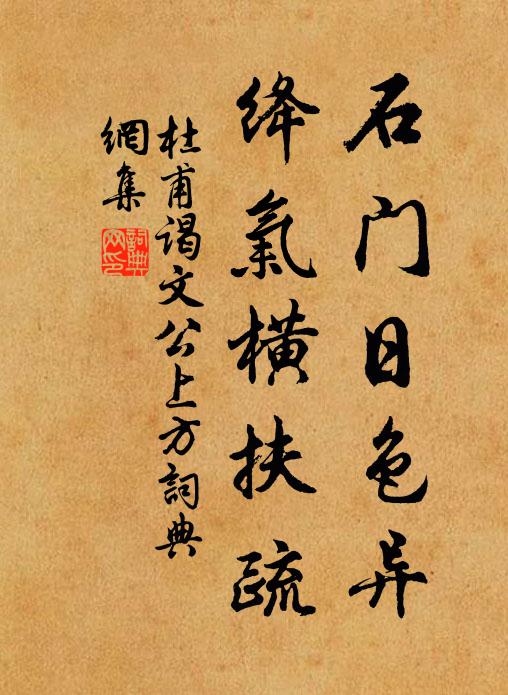 石门日色异
绛氣橫扶疏
杜甫谒文公上方詞典
網集
詞典
网印